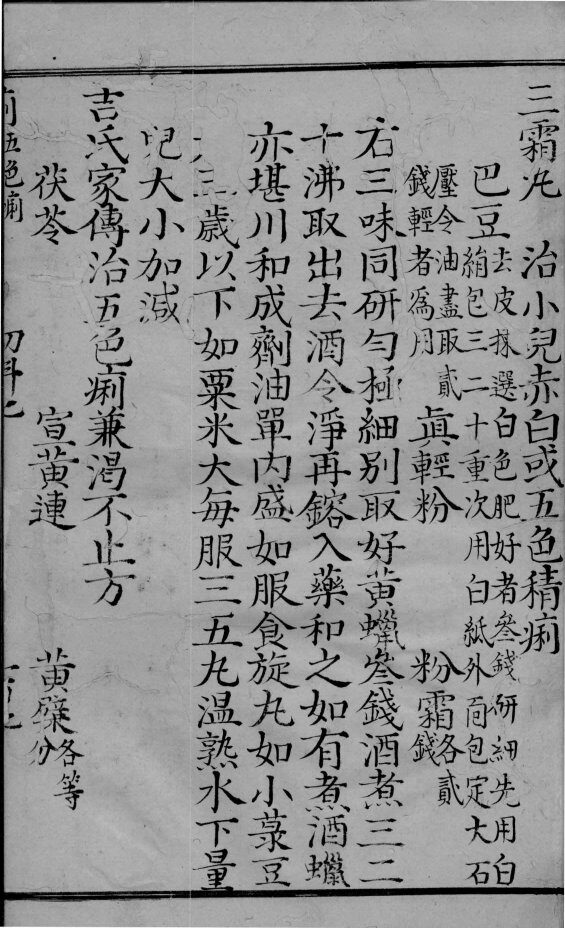 三霜丸　治小兒赤白或五色積痢
巴豆去皮揀選白色肥好者叄錢研細先用白
絹包三二十重次用白紙外面包定大石
壓令油盡取貳
錢輕者爲用　眞輕粉　粉霜各貳
錢
右三味同研勻極細别取好黃蠟叄錢酒煮三二
十沸取出去酒令淨再鎔入藥和之如有煮酒蠟
亦堪用和成劑油單内盛如服食旋丸如小菉豆
三歲以下如粟米大每服三五丸温熟水下量
兒大小加減
吉氏家傳治五色痢兼渴不止方
茯苓　宣黃連　黃蘗各等
分
五色痢